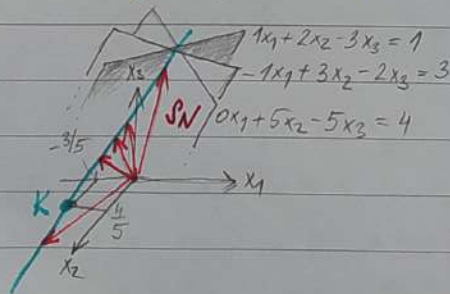 1x₁+2x₂-3x₃=1
-1x₁+3x₂-2x₃=3
x₃
SN
0x₁+5x₂-5x₃=4
-3/5
x₁
K
4/5
x₂